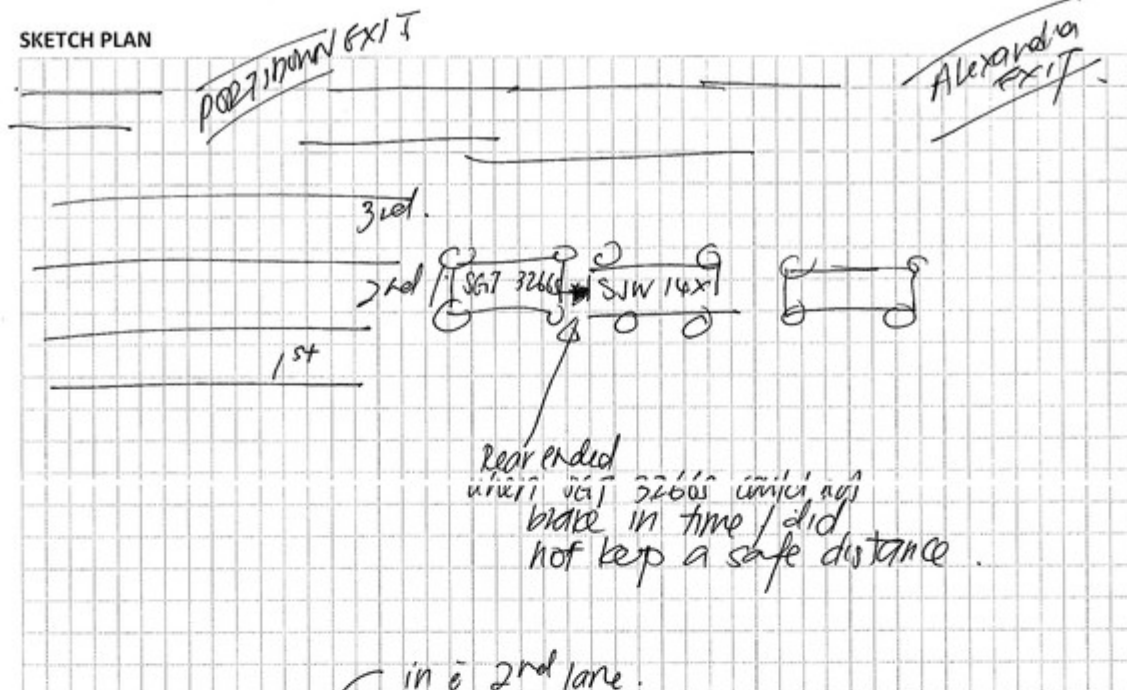 SKETCH PLAN
PORTSDOWN EXIT
Alexandra
EXIT
3rd.
2nd
SGT 3266s
SJW 14X
1st
Rear ended
when SGT 3266s could not
brake in time / did
not keep a safe distance.
in ē 2nd lane.